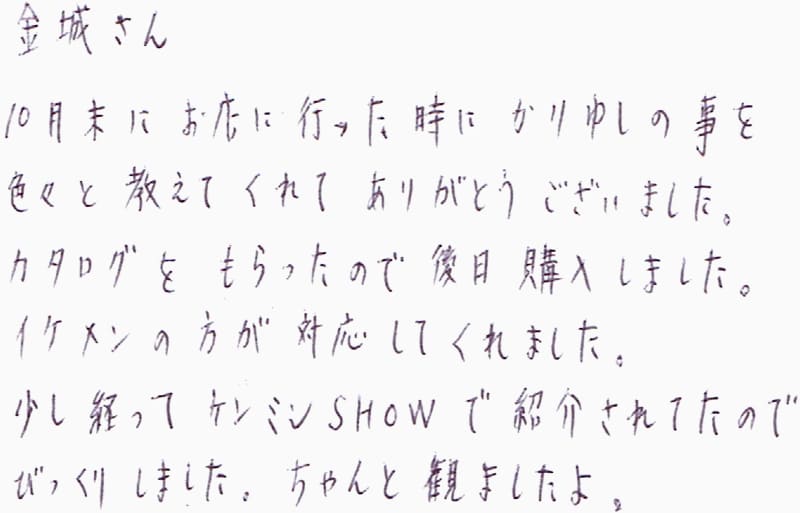 金城さん
10月末にお店に行った時にかりゆしの事を
色々と教えてくれてありがとうございました。
カタログをもらったので後日購入しました。
イケメンの方が対応してくれました。
少し経ってケンミンSHOWで紹介されてたので
びっくりしました。ちゃんと観ましたよ。